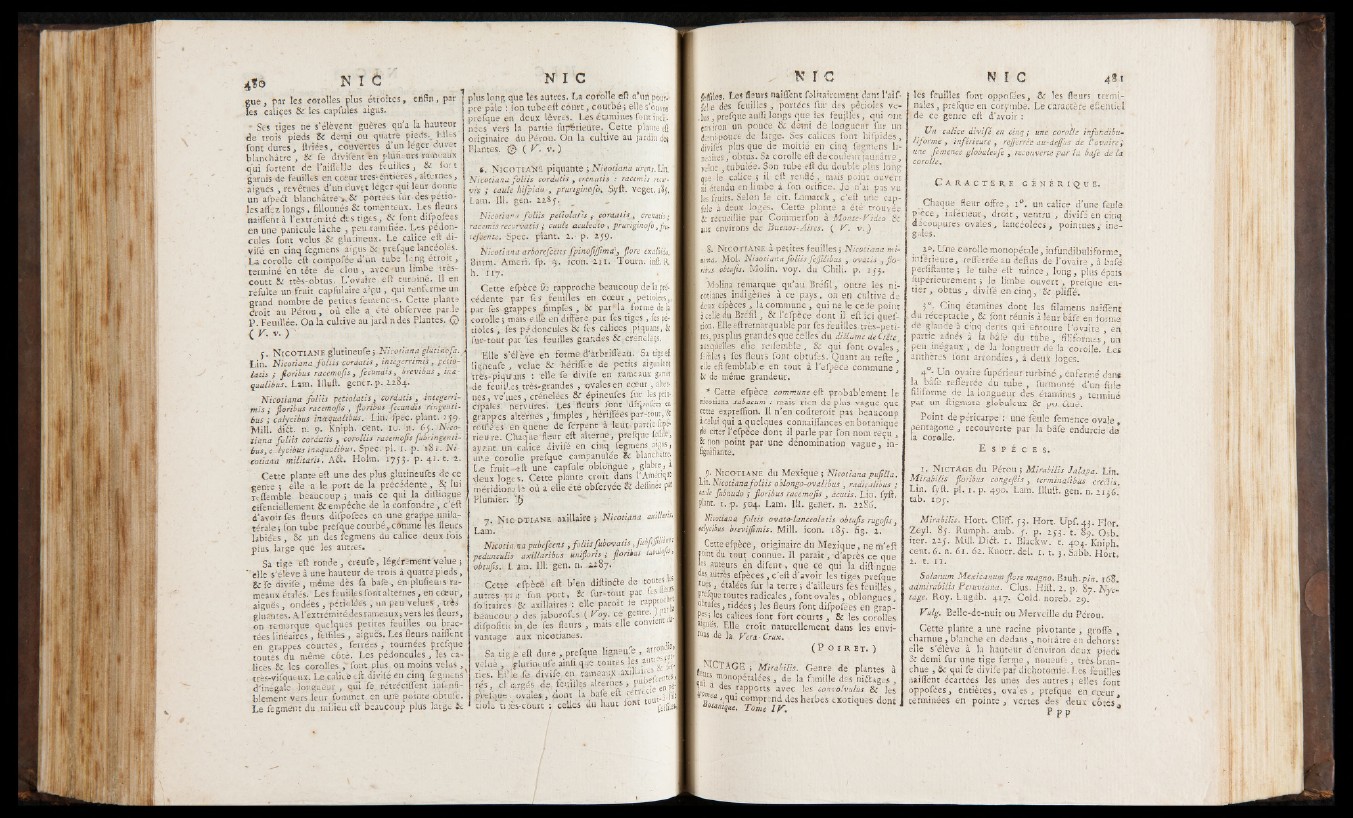 480 NIC
gue, par les corolles plus étroites, enfin, par
les calices & les capsules aigus.
Ses tiges ne s'élèvent guères qu'à la hauteur
de trois pieds & demi ou quatre pieds. Elles
font dures, striées, couvertes d'un léger duvet
blanchâtre, & se divisent en plusieurs rameaux
qui sortent de l'aisselle des feuilles, & sont
garnis de feuilles en cœur très-entières, alternes,
aiguës, revêtues d'un duvet léger qui leur donne
un aspect blanchâtre, & portées sur des pétio-
les assez longs, sillonnés & tomenteux. Les fleurs
naissent à l'extrémité des tiges, & sont disposées
en une panicule lâche, peu ramifiée. Les pédon-
cules sont velus & glutineux. Le calice est di-
visé en cinq segmens aigus & presque lancéolés.
La corolle est composée d'un tube long étroit,
terminé en tête de clou, avec un limbe très-
court & très-obtus. L'ovaire est turbiné. Il en
résulte un fruit capsulaire aigu, qui renferme un
grand nombre de petites semences. Cette plante
croît au Pérou, où elle a été observée par le
P. Feuillée. On la cultive au jardin des Plantes.
( V. v. )
5. NICOTIANE glutineuse; Nicotiana glutinosa.
Lin. Nicotiana foliis cordatis, integerrimis, petio-
latis; floribus racemosis, secundis, brevibus, inæ-
qualibus. Lam. Illust. gener. p. 2284.
Nicotiana foliis petiolatis, cordatis, integerri-
mis; floribus racemosis, floribus secundis ringenti-
bus; calycibus inæqualibus. Lin. spec. plant. 259.
Mill. dict. n. 9. Kniph. cent. 10. n. 65. Nico-
tiana foliis cordatis, corollis racemosis subringenti-
bus, calycibus inæqualibus. Spec. pl. 1. p. 181. Ni-
cotiana militaris. Act. Holm. 1753. p. 41. t. 2.
Cette plante est une des plus glutineuses de ce
genre; elle a le port de la précédente, & lui
ressemble beaucoup; mais ce qui la distingue
essentiellement & empêche de la confondre, c'est
d'avoir ses fleurs disposées en une grappe unila-
térale; son tube presque courbé, comme les fleurs
labiées, & un des segmens du calice deux fois
plus large que les autres.
Sa tige est ronde, creuse, légèrement velue;
elle s'élève à une hauteur de trois à quatre pieds,
& se divise, même dès sa base, en plusieurs ra-
meaux étalés. Les feuilles sont alternes, en cœur,
aiguës, ondées, pétiolées, un peu velues, très
gluantes. A l'extrémité des rameaux, vers les fleurs,
on remarque quelques petites feuilles ou brac-
tées linéaires, sessiles, aiguës. Les fleurs naissent
en grappes courtes, serrées, tournées presque
toutes du même côté. Les pédoncules, les ca-
lices & les corolles, sont plus ou moins velus,
très-visqueux. Le calice est divisé en cinq segmens
d'inégale longueur, qui se rétrécissent insensi-
blement vers leur sommet en une pointe obtuse.
Le segment du milieu est beaucoup plus large &
NIC
plus long que les autres. La corolle est d'un pour-
pre pâle: son tube est court, courbé; elle s'ouvre
presque en deux lèvres. Les étamines sont incli-
nées vers la partie supérieure. Cette plante est
originaire du Pérou. On la cultive au jardin des
Plantes. ( V. v. )
6. NICOTIANE piquante; Nicotiana urens. Lin.
Nicotiana foliis cordatis, crenatis: racemis recur-
vis; caule hispido, pruriginoso. Syst. veget. 185.
Lam. Ill. gen. 2285.
Nicotiana foliis petiolatis, cordatis, crenatis;
racemis recurvatis; caule aculeato, pruriginoso, fru-
tescente. Spec. plant. 2. p. 259.
Nicotiana arborescens spinosissima, flore exalbido.
Burm. Ameri. sp. 3. icon. 211. Tourn. inst. R.
h. 117.
Cette espèce se rapproche beaucoup de la pré-
cédente par ses feuilles en cœur, pétiolées,
par ses grappes simples, & par la forme de la
corolle; mais elle en diffère par ses tiges, ses pé-
tioles, ses pédoncules & ses calices piquans, &
sur-tout par ses feuilles grandes & crenelées.
Elle s'élève en forme d'arbrisseau. Sa tige est
ligneuse, velue & hérissée de petits aiguillons
très-piquans: elle se divise en rameaux garnis
de feuilles très-grandes, ovales en cœur, alter-
nes, velues, crénelées & épineuses sur les prin-
cipales nervures. Les fleurs sont disposées en
grappes alternes, simples, hérissées par-tout, &
roulées en queue de serpent à leur partie supé-
rieure. Chaque fleur est alterne, presque sessile,
ayant un calice divisé en cinq segmens aigus,
une corolle presque campanulée & blanchâtre.
Le fruit est une capsule oblongue, glabre, à
deux loges. Cette plante croît dans l'Amérique
méridionale où a elle été observée & dessinée par
Plumier.
7. NICOTIANE axillaire; Nicotiana axillaris.
Lam.
Nicotiana pubescens, foliis subovatis, subsessilibus;
pedunculis axillaribus unifloris; floribus tubulosis,
obtusis. Lam. Ill. gen. n. 2287.
Cette espèce est bien distincte de toutes les
autres par son port, & sur-tout par ses fleurs
solitaires & axillaires: elle paroît se rapprocher
beaucoup des jaborosa, ( Voy. ce genre. ) par la
disposition de ses fleurs, mais elle convient da-
vantage aux nicotianes.
Sa tige est dure, presque ligneuse, arrondie,
velue, glutineuse ainsi que toutes les autres par-
ties. Elle se divise en rameaux axillaires & ser-
rés, chargés de feuilles alternes, pubescentes,
presque ovales, dont la base est rétrécie en pé-
tiole très-court: celles du haut sont toutes
sessiles.
NIC
sessiles. Les fleurs naissent solitairement dans l'ais-
selle des feuilles, portées sur des pétioles ve-
lus, presque aussi longs que les feuilles, qui ont
environ un pouce & demi de longueur sur un
demi-pouce de large. Ses calices sont hispides,
divisés plus que de moitié en cinq segmens li-
néaires, obtus. Sa corolle est de couleur jaunâtre,
velue, tubulée. Son tube est du double plus long
que le calice; il est renflé, mais point ouvert
ni étendu en limbe à son orifice. Je n'ai pas vu
les fruits. Selon le cit. Lamarck, c'est une cap-
sule à deux loges. Cette plante a été trouvée
& recueillie par Commerson à Monte-Video &
aux environs de Buenos-Aires. ( V. v. )
8. NICOTIANE à petites feuilles; Nicotiana mi-
nima. Mol. Nicotiana foliis sessilibus, ovatis, flo-
ribus obtusis. Molin. voy. du Chili. p. 155.
Molina remarque qu'au Brésil, outre les ni-
cotianes indigènes à ce pays, on en cultive de
deux espèces, la commune, qui ne le cède point
à celle du Brésil, & l'espèce dont il est ici ques-
tion. Elle est remarquable par ses feuilles très-peti-
tes, pas plus grandes que celles du dictame de Crète,
auxquelles elle ressemble, & qui sont ovales,
sessiles; ses fleurs sont obtuses. Quant au reste,
elle est semblable en tout à l'espèce commune,
& de même grandeur.
* Cette espèce commune est probablement le
nicotiana tabacum; mais rien de plus vague que
cette expression. Il n'en coûteroit pas beaucoup
à celui qui a quelques connaissances en botanique
de citer l'espèce dont il parle par son nom reçu,
& non point par une dénomination vague, in-
signifiante.
9. NICOTIANE du Mexique; Nicotiana pusilla.
Lin. Nicotiana foliis oblongo-ovalibus, radicalibus;
caule subnudo; floribus racemosis, acutis. Lin. syst.
plant. 1. p. 504. Lam. Ill. gener. n. 2286.
Nicotiana foliis ovato-lanceolatis obtusis rugosis,
calycibus brevissimis. Mill. icon. 185. fig. 2.
Cette espèce, originaire du Mexique, ne m'est
point du tout connue. Il paraît, d'après ce que
les auteurs en disent, que ce qui la distingue
des autres espèces, c'est d'avoir les tiges presque
nues, étalées sur la terre; d'ailleurs ses feuilles,
presque toutes radicales, sont ovales, oblongues,
obtuses, ridées; les fleurs sont disposées en grap-
pes; les calices sont fort courts, & les corolles
aiguës. Elle croît naturellement dans les envi-
rons de la Vera-Crux.
(POIRET.)
NICTAGE; Mirabilis. Genre de plantes à
fleurs monopétalées, de la famille des nictages,
qui a des rapports avec les convolvulus & les
, qui comprend des herbes exotiques dont
Botanique. Tome IV.
NIC 481
les feuilles sont opposées, & les fleurs termi-
nales, presque en corymbe. Le caractère essentiel
de ce genre est d'avoir:
Un calice divisé en cinq; une corolle infundibu-
liforme, inférieure, resserrée au-dessus de l'ovaire;
une semence globuleuse, recouverte par la base de la
corolle.
CARACTERE GÉNÉRIQUE.
Chaque fleur offre, 1°. un calice d'une seule
pièce, inférieur, droit, ventru, divisé en cinq
découpures ovales, lancéolées, pointues, iné-
gales.
2°. Une corolle monopétale, infundibuliforme,
inférieure, resserrée au dessus de l'ovaire, à base
persistante; le tube est mince, long, plus épais
supérieurement; le limbe ouvert, presque en-
tier, obtus, divisé en cinq, & plissé.
3°. Cinq étamines dont les filamens naissent
du réceptacle, & sont réunis à leur base en forme
de glande à cinq dents qui entoure l'ovaire, en
partie adnés à la base du tube, filiformes, un
peu inégaux, de la longueur de la corolle. Les
anthères sont arrondies, à deux loges.
4°. Un ovaire supérieur turbiné, enfermé dans
la base resserrée du tube, surmonté d'un stile
filiforme de la longueur des étamines, terminé
par un stigmate globuleux & ponctué.
Point de péricarpe: une seule semence ovale,
pentagone, recouverte par la base endurcie de
la corolle.
ESPÈCES.
1. NICTAGE du Pérou; Mirabilis Jalapa. Lin.
Mirabilis floribus congestis, terminalibus erectis.
Lin. syst. pl. 1. p. 490. Lam. Illust. gen. n. 2136.
tab. 105.
Mirabilis. Hort. Cliff. 53. Hort. Upf. 43. Flor.
Zeyl. 85. Rumph. amb. 5. p. 253. t. 89. Osb.
iter. 225. Mill. Dict. 1. Blackw. t. 404. Kniph.
cent. 6. n. 61. 62. Knorr. del. 1. t. 3. Sabb. Hort.
2. t. 11.
Solanum Mexicanum flore magno. Bauh. pin. 168.
admirabilis Peruviana. Clus. Hist. 2. p. 87. Nyc-
tage. Roy. Lugdb. 417. Cold noreb. 29.
Vulg. Belle-de-nuit ou Merveille du Pérou.
Cette plante a une racine pivotante, grosse,
charnue, blanche en dedans, noirâtre en dehors:
elle s'élève à la hauteur d'environ deux pieds
& demi sur une tige ferme, noueuse, très-bran-
chue, & qui se divise par dichotomie. Les feuilles
naissent écartées les unes des autres; elles sont
opposées, entières, ovales, presque en cœur,
terminées en pointe, vertes des deux côtés,
Ppp